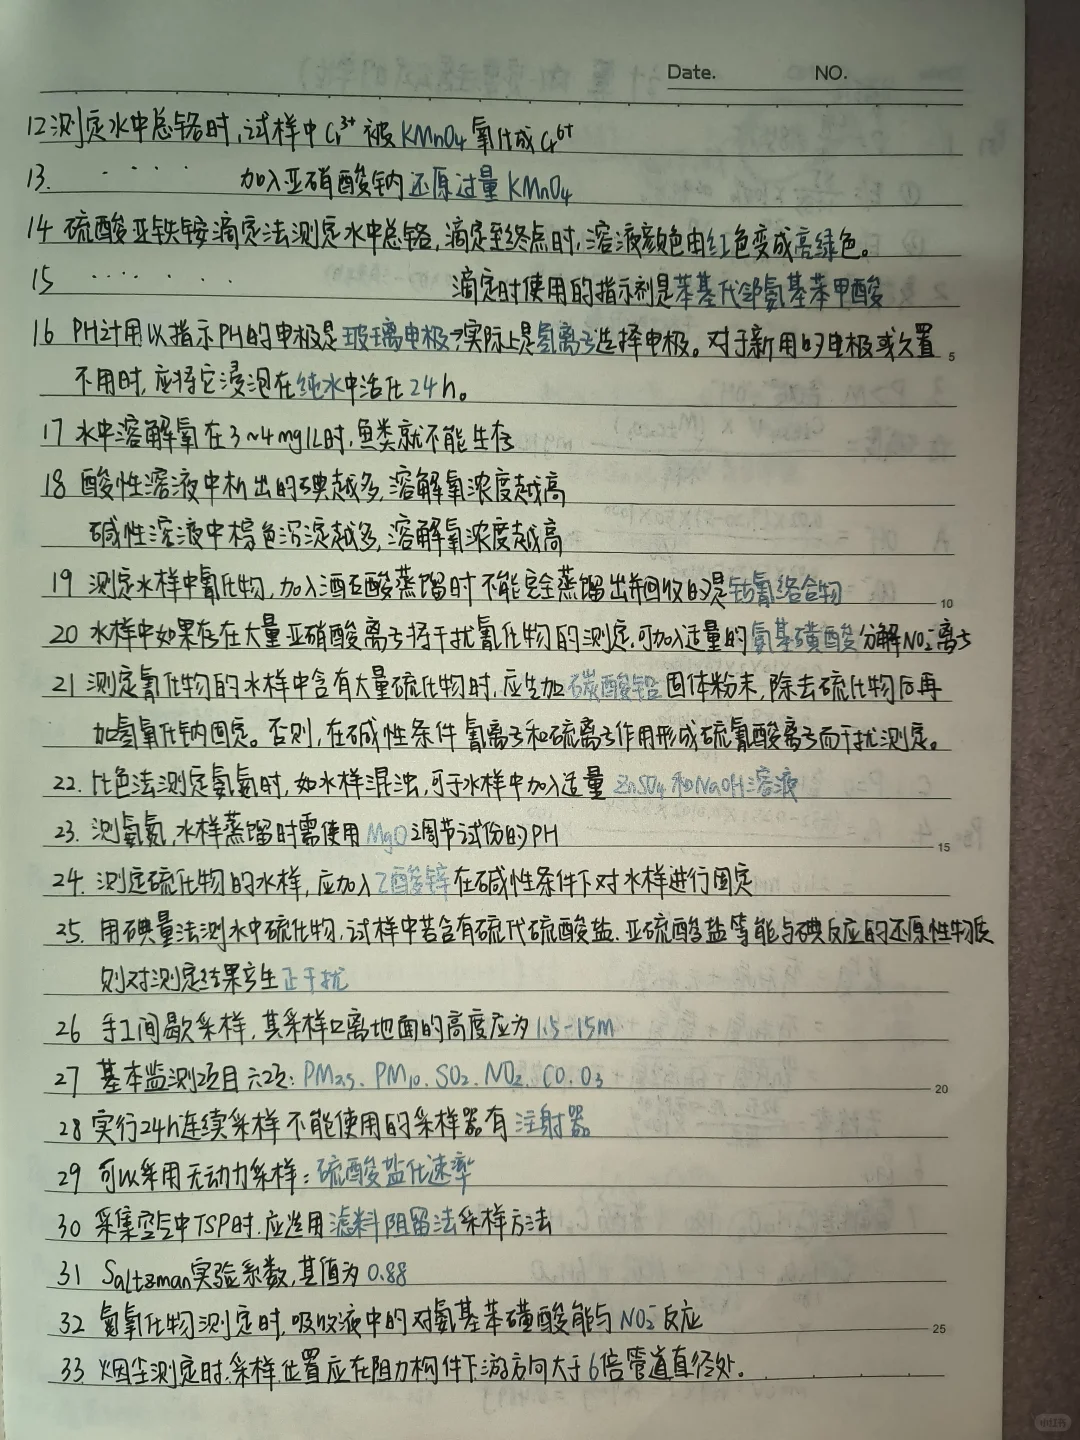 Date. NO.
12 测定水中总铬时,试样中Cr³⁺被KMnO₄氧化成Cr⁶⁺
13. ····· 加入亚硝酸钠还原过量KMnO₄
14 硫酸亚铁铵滴定法测定水中总铬,滴定至终点时,溶液颜色由红色变成亮绿色。
15 ······ 滴定时使用的指示剂是苯基代邻氨基苯甲酸
16 PH计用以指示PH的电极是玻璃电极→实际上是氢离子选择电极。对于新用的电极或久置
5
不用时,应将它浸泡在纯水中活化24h。
17 水中溶解氧在3~4mg/L时,鱼类就不能生存
18 酸性溶液中析出的碘越多,溶解氧浓度越高
碱性溶液中棕色沉淀越多,溶解氧浓度越高
19 测定水样中氰化物,加入酒石酸蒸馏时不能完全蒸馏出并回收的是钴氰络合物
10
20 水样中如果存在大量亚硝酸离子将干扰氰化物的测定,可加入适量的氨基磺酸分解NO₂⁻离子
21 测定氰化物的水样中含有大量硫化物时,应先加碳酸铅固体粉末,除去硫化物后再
加氢氧化钠固定。否则,在碱性条件氰离子和硫离子作用形成硫氰酸离子而干扰测定。
22. 比色法测定氨氮时,如水样混浊,可于水样中加入适量ZnSO₄和NaOH溶液
23. 测氨氮,水样蒸馏时需使用MgO调节试份的PH
15
24. 测定硫化物的水样,应加入乙酸锌在碱性条件下对水样进行固定
25. 用碘量法测水中硫化物,试样中若含有硫代硫酸盐.亚硫酸盐等能与碘反应的还原性物质
则对测定结果产生正干扰
26 手工间歇采样,其采样口离地面的高度应为1.5-15M
27 基本监测项目六项:PM₂.₅.PM₁₀.SO₂.NO₂.CO.O₃
20
28 实行24h连续采样不能使用的采样器有注射器
29 可以采用无动力采样:硫酸盐化速率
30 采集空气中TSP时.应选用滤料阻留法采样方法
31 Saltzman实验系数,其值为0.88
32 氮氧化物测定时,吸收液中的对氨基苯磺酸能与NO₂⁻反应
25
33. 烟尘测定时.采样位置应在阻力构件下游方向大于6倍管道直径处.
小红书